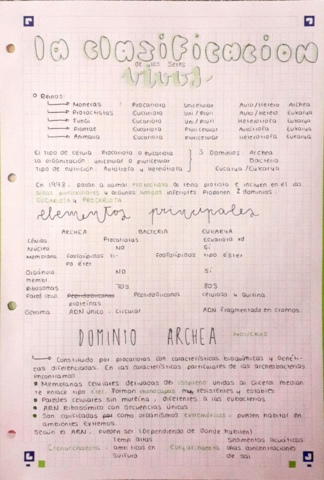 LA CLASIFICACION
de los Seres
VIVOS.
Reinos:
Moneras : Procariota Unicelular Auto/Hetero Archea
Protoctistas Eucariota Uni/Pluri Auto/Hetero Eukarya
Fungi Eucariota Uni/Pluri Heterotrofa Eukarya
Plantae Eucariota Pluricelular Autotrofa Eukarya
Animalia Eucariota Pluricelular Heterotrofa Eukarya
El tipo de celula: Procariota o eucariota
la organización: unicelular o pluricelular
Tipo de nutrición: Autótrofa y Heterótrofa
3 Dominios: Archea
Bacteria
Eucarya/Eukarya
pasan a llamar Protoctista al reino protista e incluyen en él las
algas pluricelulares y algunos hongos inferiores. Proponen 2 dominios:
EUCARIOTA y PROCARIOTA.
elementos principales
ARCHEA BACTERIA EUKARYA
Células Procariotas Eucariota
Núcleo No Sí
Membrana Fosfolípidos ti- fosfolípidos tipo éster
po éter
Orgánulo NO Sí
memb.
Ribosomas 70S 80S
Pared celul. Peptidoglicano Peptidoglicano celulosa y quitina
proteínas
Genoma ADN único - circular ADN fragmentado en cromos.
DOMINIO ARCHEA
Constituido por procariotas con características bioquímicas y genéti-
cas diferenciadas. En las características particulares de las archeobacterias
encontramos:
Membranas celulares derivadas de isopreno unidas al glicerol median-
te enlace tipo éter. Forman monocapas muy resistentes y estables
Paredes celulares sin mureína, diferentes a las eubacterias.
ARN Ribosómico con secuencias únicas
Son calificadas por como organismos extremófilos: pueden habitar en
ambientes extremos.
Según el ARN, pueden ser (dependiendo de donde habiten)
Temp. altas
Crenarchaeota: ambientes ricos en
sulfuro
Sedimentos acuáticos
Euryarchaeota: altas concentraciones
de sal